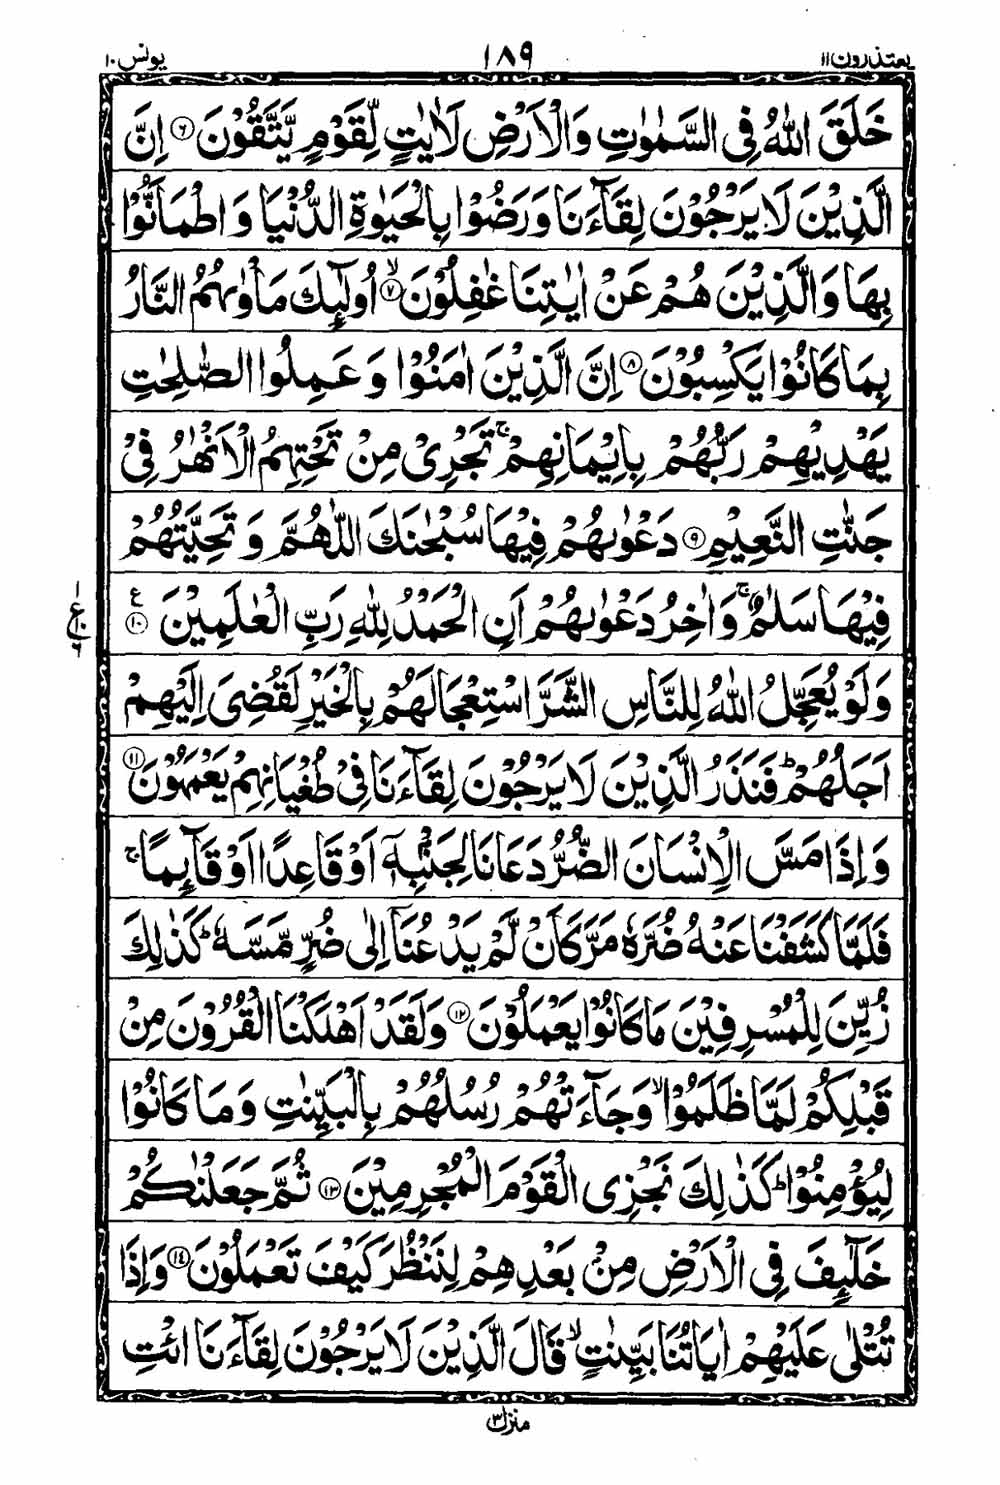 يعتذرون ١١ ١٨٩ يونس ١٠
خَلَقَ اللّٰهُ فِی السَّمٰوٰتِ وَالْاَرْضِ لَاٰیٰتٍ لِّقَوْمٍ یَّتَّقُوْنَ ۝۶ اِنَّ
الَّذِیْنَ لَا یَرْجُوْنَ لِقَآءَنَا وَرَضُوْا بِالْحَیٰوةِ الدُّنْیَا وَاطْمَاَنُّوْا
بِهَا وَالَّذِیْنَ هُمْ عَنْ اٰیٰتِنَا غٰفِلُوْنَ ۝۷ۙ اُولٰٓئِكَ مَاْوٰىهُمُ النَّارُ
بِمَا كَانُوْا یَكْسِبُوْنَ ۝۸ اِنَّ الَّذِیْنَ اٰمَنُوْا وَعَمِلُوا الصّٰلِحٰتِ
یَهْدِیْهِمْ رَبُّهُمْ بِاِیْمَانِهِمْ ۚ تَجْرِیْ مِنْ تَحْتِهِمُ الْاَنْهٰرُ فِیْ
جَنّٰتِ النَّعِیْمِ ۝۹ دَعْوٰىهُمْ فِیْهَا سُبْحٰنَكَ اللّٰهُمَّ وَتَحِیَّتُهُمْ
فِیْهَا سَلٰمٌ ۚ وَاٰخِرُ دَعْوٰىهُمْ اَنِ الْحَمْدُ لِلّٰهِ رَبِّ الْعٰلَمِیْنَ ۝۱۰ ع
١ ع ١٠ ٦
وَلَوْ یُعَجِّلُ اللّٰهُ لِلنَّاسِ الشَّرَّ اسْتِعْجَالَهُمْ بِالْخَیْرِ لَقُضِیَ اِلَیْهِمْ
اَجَلُهُمْ ؕ فَنَذَرُ الَّذِیْنَ لَا یَرْجُوْنَ لِقَآءَنَا فِیْ طُغْیَانِهِمْ یَعْمَهُوْنَ ۝۱۱
وَاِذَا مَسَّ الْاِنْسَانَ الضُّرُّ دَعَانَا لِجَنْۢبِهٖۤ اَوْ قَاعِدًا اَوْ قَآئِمًا ۚ
فَلَمَّا كَشَفْنَا عَنْهُ ضُرَّهٗ مَرَّ كَاَنْ لَّمْ یَدْعُنَاۤ اِلٰی ضُرٍّ مَّسَّهٗ ؕ كَذٰلِكَ
زُیِّنَ لِلْمُسْرِفِیْنَ مَا كَانُوْا یَعْمَلُوْنَ ۝۱۲ وَلَقَدْ اَهْلَكْنَا الْقُرُوْنَ مِنْ
قَبْلِكُمْ لَمَّا ظَلَمُوْا ۙ وَجَآءَتْهُمْ رُسُلُهُمْ بِالْبَیِّنٰتِ وَمَا كَانُوْا
لِیُؤْمِنُوْا ؕ كَذٰلِكَ نَجْزِی الْقَوْمَ الْمُجْرِمِیْنَ ۝۱۳ ثُمَّ جَعَلْنٰكُمْ
خَلٰٓئِفَ فِی الْاَرْضِ مِنْۢ بَعْدِهِمْ لِنَنْظُرَ كَیْفَ تَعْمَلُوْنَ ۝۱۴ وَاِذَا
تُتْلٰی عَلَیْهِمْ اٰیَاتُنَا بَیِّنٰتٍ ۙ قَالَ الَّذِیْنَ لَا یَرْجُوْنَ لِقَآءَنَا ائْتِ
منزل ٣